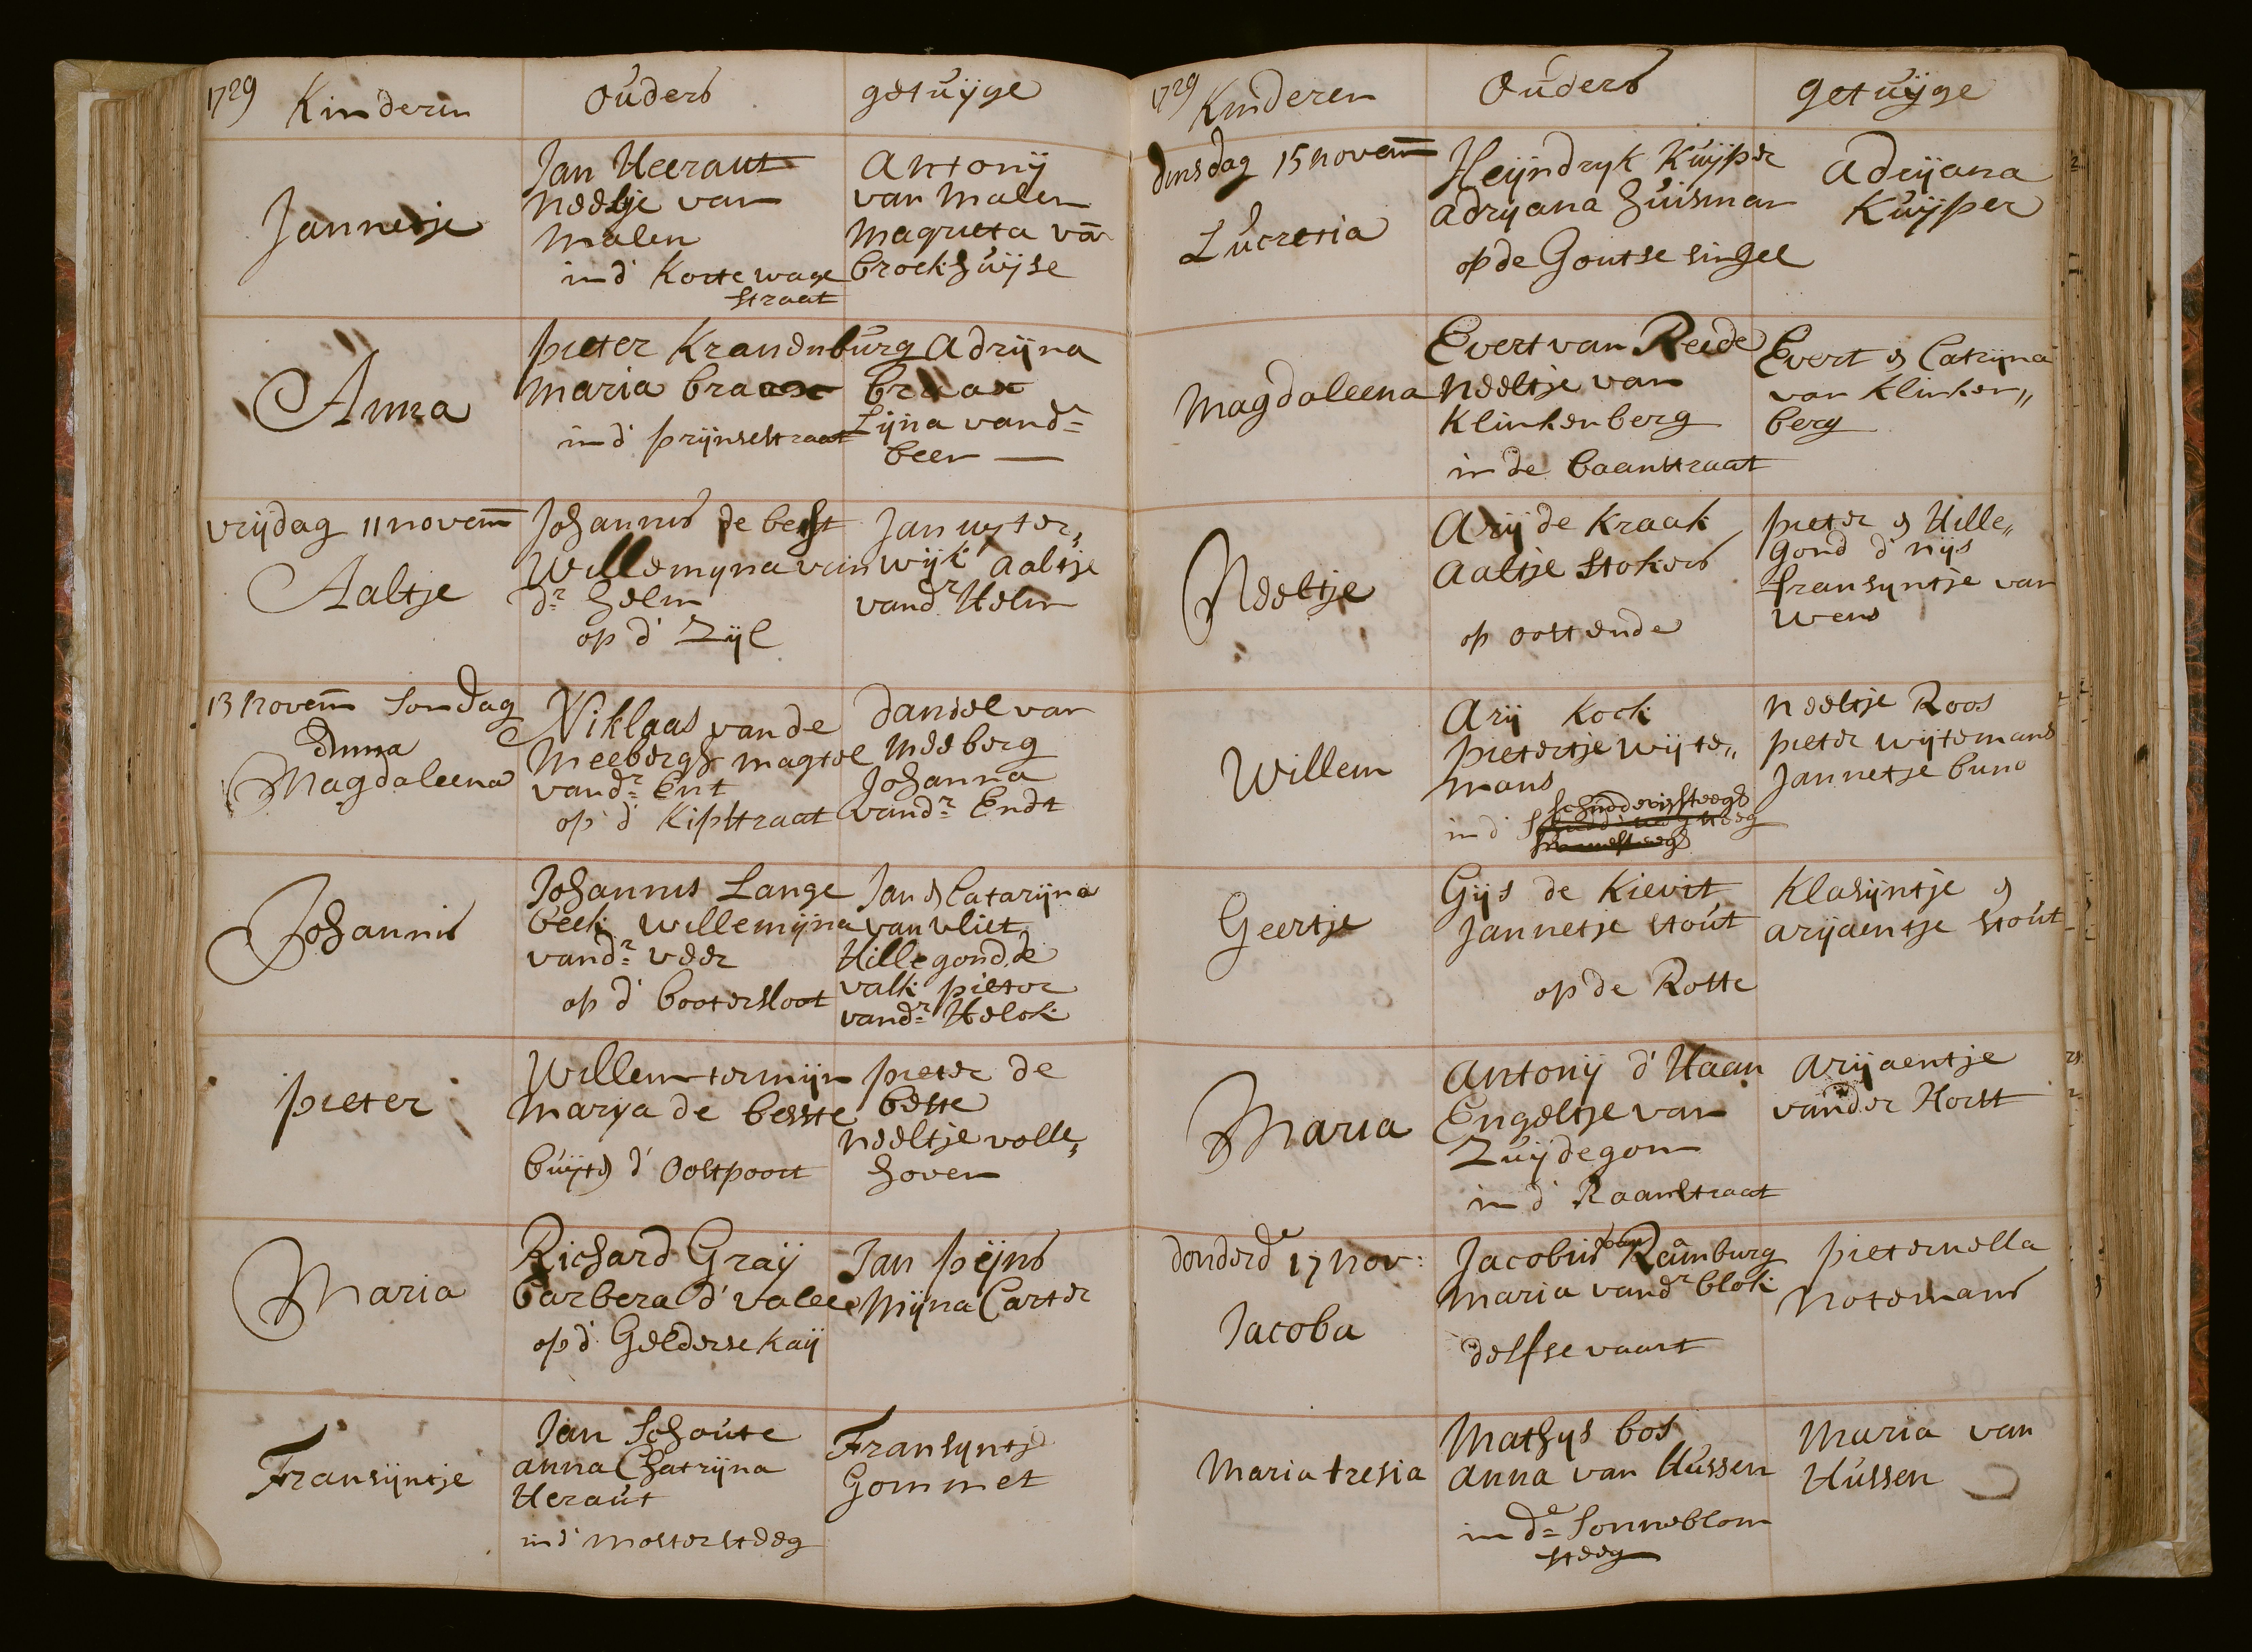 1729 Kinderen Ouders getuijge
Jannetje
Jan Heeraut
Neeltje van
Malen
in d' Korte wage
straat
Antonij
van Malen
Magrieta vā
broekhuijse
Anna
pieter Kranenburg
Maria braax
in d' prijnsestraat
Adrijna
braax
Lijna vand=
beer
vrijdag 11 novem
Aaltje
Johannis de best
Willemyna van
dr helm
op d' Zijl
Jan uyter,,
wijk aaltje
vandr Helm
13 novem Sondag
Anna
Magdaleena
Niklaas van de
Meebergh magtel
vandr Ent
op d' Kipstraat
Daniel van
Meeberg
Johanna
vandr Endt
Johannis
Johannis Lange
beek Willemijna
vandr veer
op d' bootersloot
Jan & Catarijna
van vliet
Hillegond de
valk pieter
vandr
pieter
Willem termijn
Marya de besste
buijte d' Oostpoort
pieter de
beste
Neeltje volle,,
hoven
Maria
Richard Graij
barbera d' valee
op d' Gelderse kaij
Jan peijns
Mijna Carter
Fransijntje
Jan Schoute
anna Chatrijna
Heraut
in d' Mostersteeg
Fransyntje
Gommet
1729 Kinderen Ouders getuijge
dinsdag 15 novem
Lucretia
Heijndryk Kuijper
Adryana huisman
op de Goutse singel
Adrijana
Kuijper
Magdaleena
Evert van Reede
Neeltje van
Klinkenberg
in de baanstraat
Evert & Catrijna
van Klinken,,
berg
Neeltje
Arij de Kraak
Aaltje Stokers
op oostende
pieter & Hille,,
gond d' nijs
fransyntje van
Wens
Willem
Arij Kock
pietertje wijte,,
mans
in d' schuddevissteegh
Neeltje Roos
pieter wijtemans
Jannetje buno
Geertje
Gijs de Kievit
Jannetje Stout
op de Rotte
Klasijntje &
arijaentje Stout
Maria
Antonij d' Haan
Engeltje van
Zuijdegom
in d' Raamstraat
Arijaentje
vander Horst
donderd 17 nov:
Jacoba
Jacobus van Ramburg
Maria vandr blok
delfse vaart
pieternella
Notemans
Maria tresia
Mathys bos
Anna van Hussen
in de Sonneblom
steeg
Maria van
Hussen